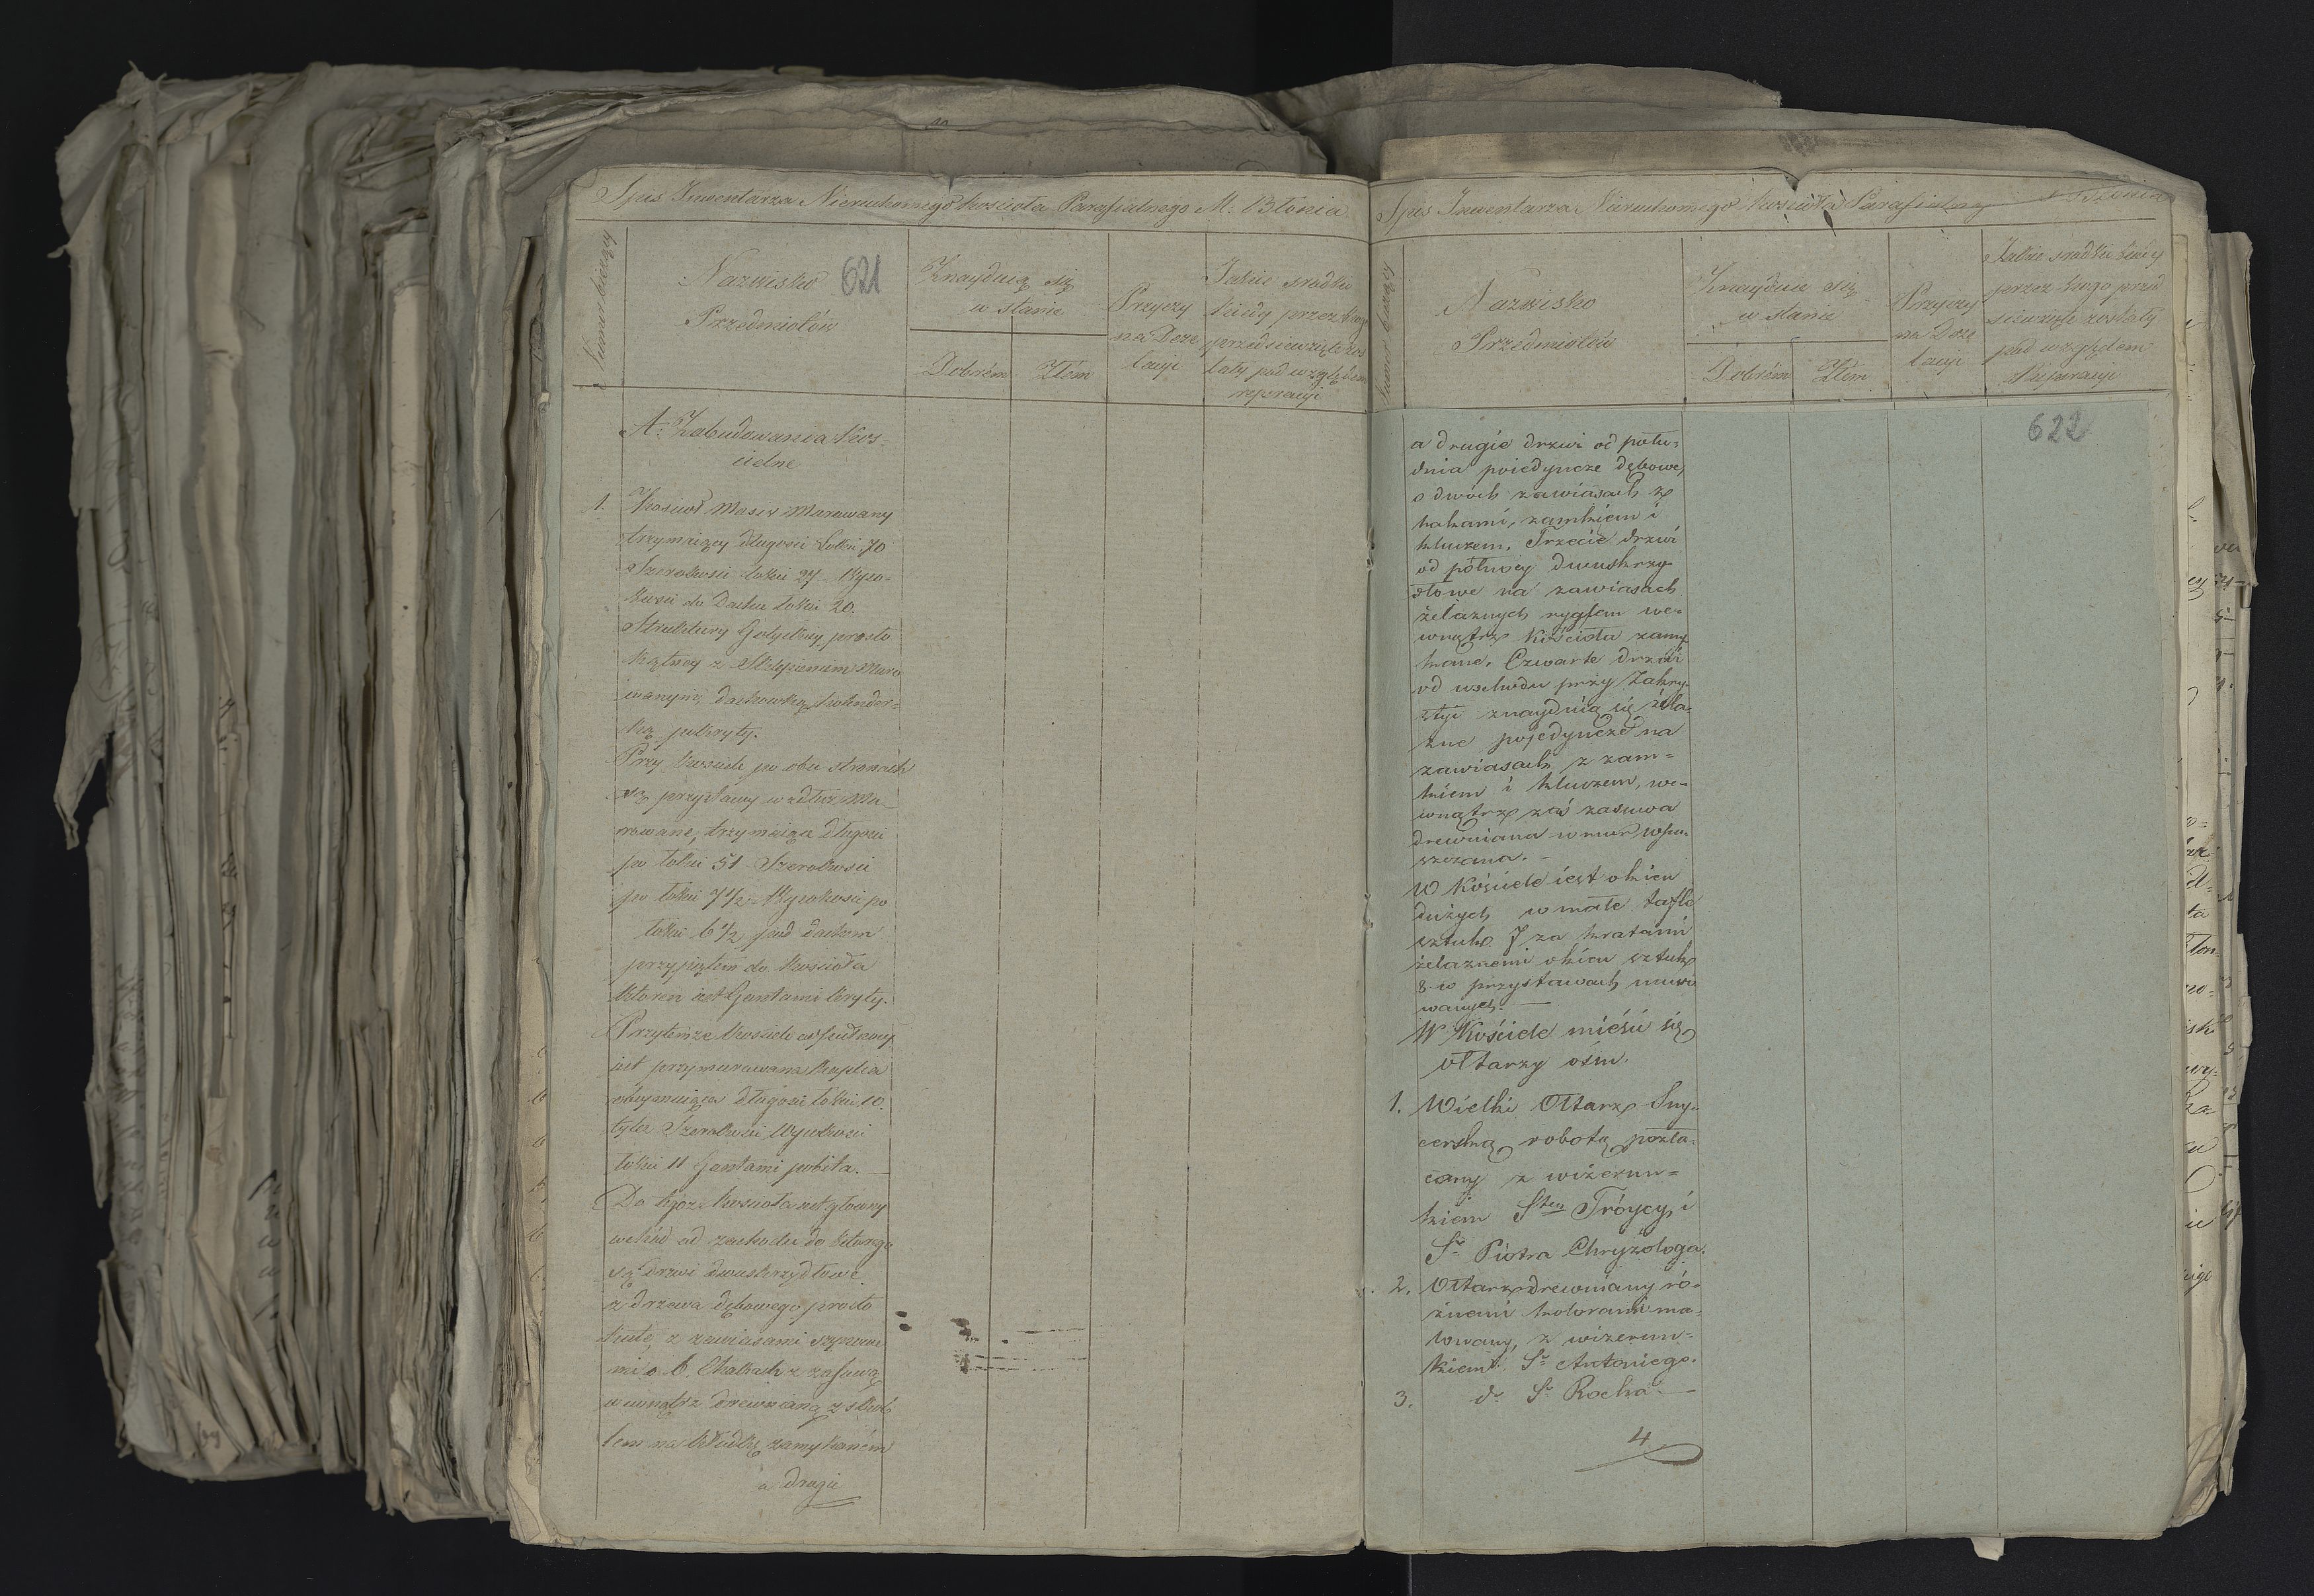 Spis Inwentarza Nieruchomego Kościoła Parafialnego M. Błonia
Numer bieżący
Nazwisko 621
Przedmiotów
Znayduią się
w stanie
Dobrém Złém
Przyczy
na Deze
lacyi
Jakie srodki
kiedy przez kogo
przedsiewzięte zos
tały pod względem
reperacyi
A. Zabudowania Koś-
cielne
1. Kosciół Massiv Murowany
trzymaiący długosci Łokci 70
Szerokosci łokci 27 Wyso-
kosci do Dachu łokci 20.
Struktury Gotyckiey prosto
kątney z Szkarpami Muro
wanymi, dachowką holender-
ską pokryty.
Przy kosciele po obu stronach
są przystawy wzdłuż Mu-
rowane, trzymaiące długosci
po łokci 51 Szerokosci
po łokci 7½ Wysokosci po
łokci 6½ pod dachem
przypiętem do Koscioła
którén iest Gontami kryty.
Przytemże Kosciele od północy
iest przymurowana Kaplica
obeymuiąca długosci łokci 10.
tyleż Szerokosci Wysokosci
łokci 11 Gontami pobita. —
Do tegoż Koscioła iest głowny
wchód od zachodu do którego
są drzwi dwuskrzydłowe
z drzewa dębowego prosto
kute, z zawiasami
mi o 6. Hakach z zasuwą
wewnątrz drewnianą z skob
lem na Kłódkę zamykaném
a drugie
Spis Inwentarza Nieruchomego Kościoła Parafialneg Błonia
Numer bieżący
Nazwisko
Przedmiotów
Znayduie się
w stanie
Dobrém Złém
Przyczy
na Deze
lacyi
Jakie srodki kiedy
przez kogo przed
siewzięte zostały
pod względem
Reperacyi
622
a drugie drzwi od połu-
dnia poiedyncze dębowe,
o dwóch zawiasach z
hakami, zamkiem i
kluczem. Trzecie drzwi
od północy dwuskrzy-
dłowe na zawiasach
żelaznych ryglem we-
wnątrz Kościoła zamy-
kane. Czwarte drzwi
od wschodu przy Zakry-
styi znayduią się żela-
zne pojedyncze na
zawiasach z zam-
kiem i kluczem, we-
wnątrz zaś zasuwa
drewniana w mur wpu-
szczana. —
W Kościele iest okien
dużych w małe tafle
sztuk 7 za kratami
żelaznemi okien sztuk
8 w przystawach muro
wanych. —
W Kościele mieści się
ołtarzy ośm.
1. Wielki Ołtarz Sny-
cerską robotą pozła-
cany z wizerun-
kiem Stey Tróycy, i
Sr Piotra Chryzologa.
2. Ołtarz drewniany ró-
żnemi kolorami ma-
lowany, z wizerun-
kiem Sr Antoniego.
3. dr Sr Rocha. —
4